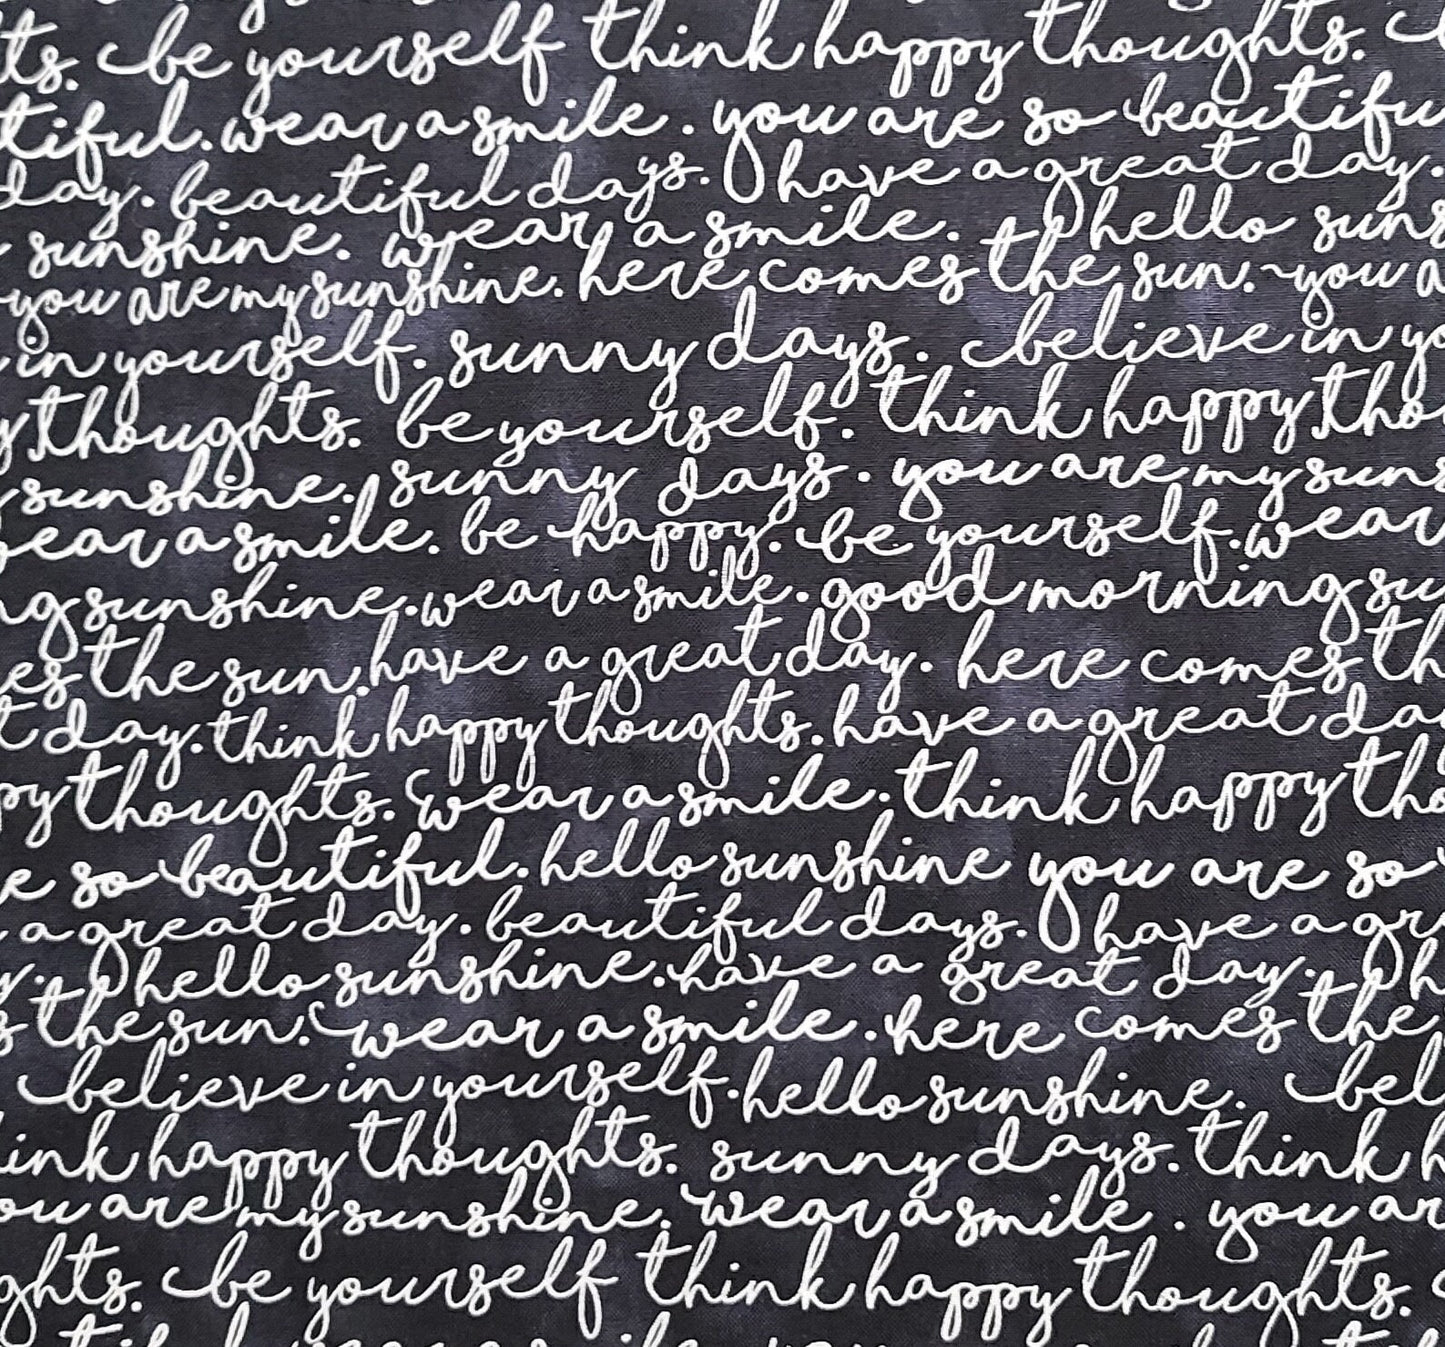 ts. be yourself think happy thoughts.
tiful. wear a smile. you are so beautifu
day. beautiful days. have a great day.
sunshine. wear a smile. hello suns
you are my sunshine. here comes the sun. you a
in yourself. sunny days. believe in yo
y thoughts. be yourself. think happy tho
sunshine. sunny days. you are my suns
ear a smile. be happy. be yourself. wear
ng sunshine. wear a smile. good morning su
es the sun. have a great day. here comes th
t day. think happy thoughts. have a great da
py thoughts. wear a smile. think happy tho
e so beautiful. hello sunshine you are so
a great day. beautiful days. have a gr
y. hello sunshine. have a great day. h
s the sun. wear a smile. here comes the
believe in yourself. hello sunshine. bel
ink happy thoughts. sunny days. think h
ou are my sunshine. wear a smile. you ar
ghts. be yourself think happy thoughts.